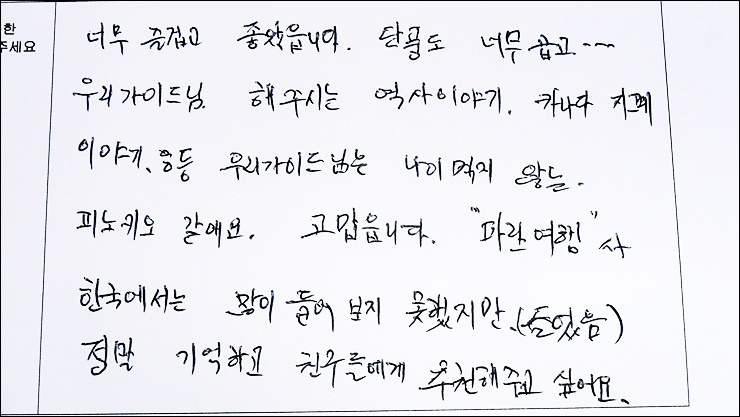 한
주세요
너무 즐겁고 좋았읍니다. 단풍도 너무 곱고~~
우리가이드님 해주시는 역사이야기. 카나다 지금께
이야기. 응등 우리가이드님는 나이먹지 않는.
피노키오 같에요. 고맙읍니다. "파란여행"사
한국에서는 많이 들어 보지 못했지만.(들었음)
정말 기억하고 친구들에게 추천해주고 싶어요.